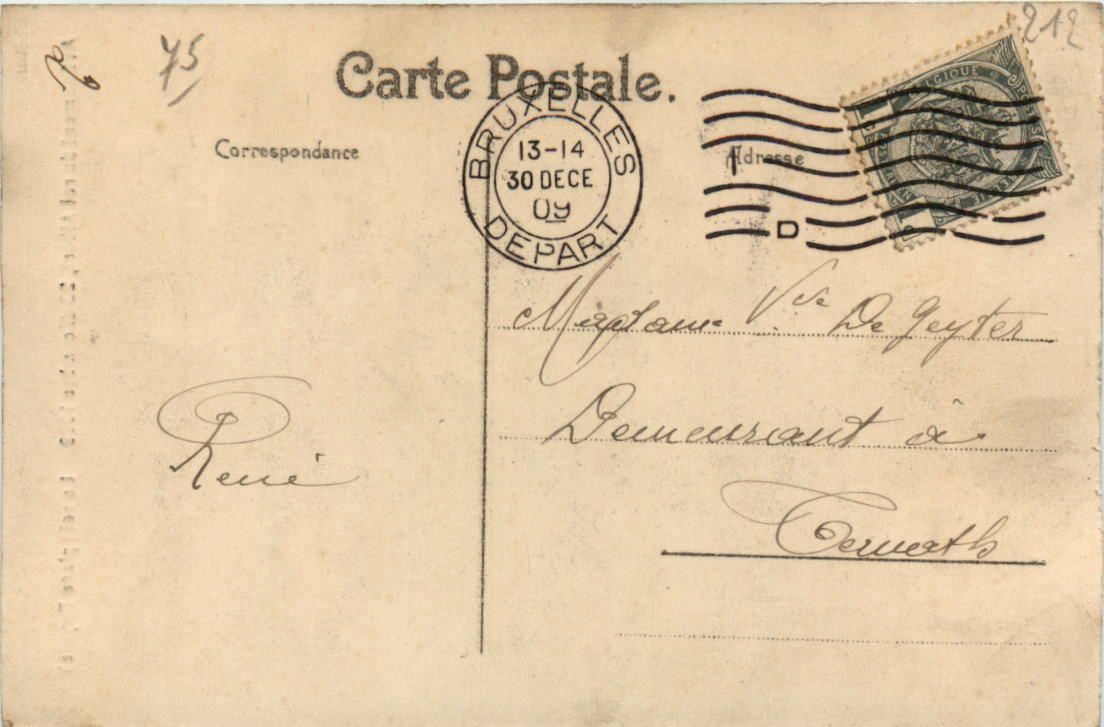 75
212
Carte Postale.
Correspondance
Adresse
BRUXELLES
13-14
30 DECE
09
DEPART
D
BELGIQUE
Madame Vve De Geyter
Demeurant à
Ternath
René